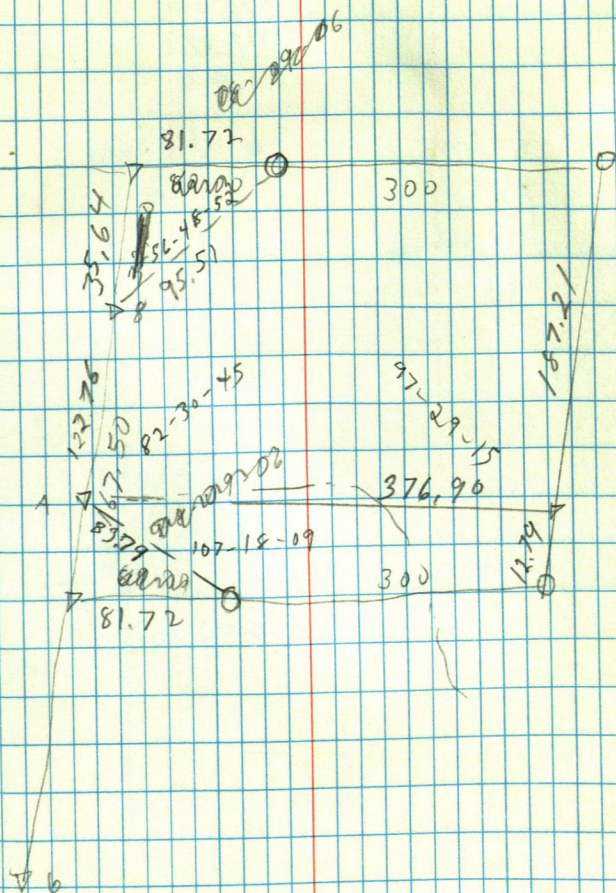 81.72
300
35.64
56-48-52
95.51
8
187.21
122.76
82-30-45
97-29-15
67.50
A
376.90
83.79
107-18-09
12.79
300
81.72
6